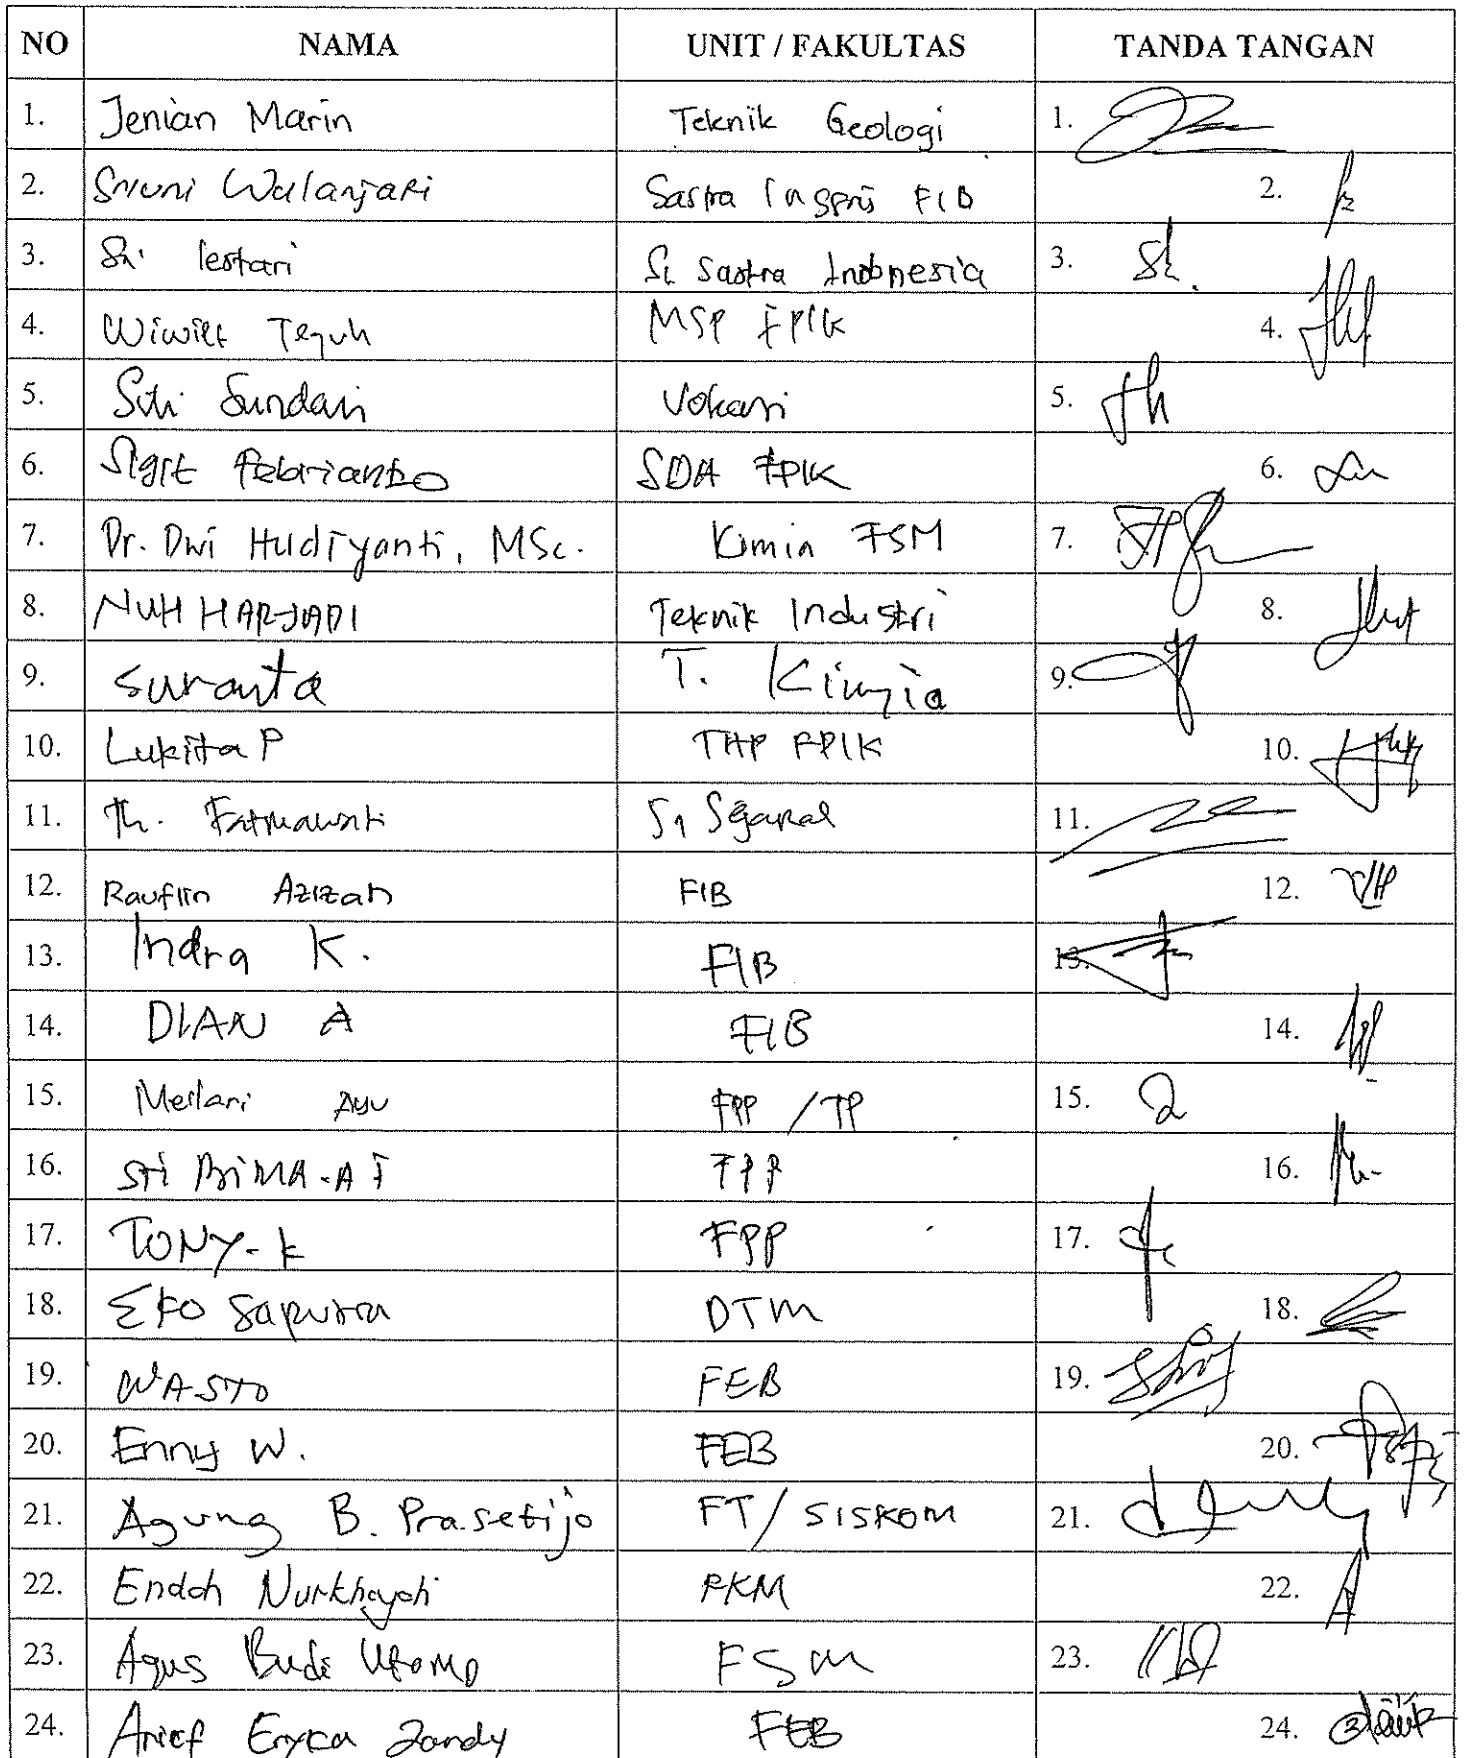 NO NAMA UNIT / FAKULTAS TANDA TANGAN
1. Jenian Marin Teknik Geologi 1.
2. Sriuni Wulanjari Sastra Inggris FIB 2.
3. Sri lestari S1 Sastra Indonesia 3.
4. Wiwiet Teguh MSP FPIK 4.
5. Siti Sundari Vokasi 5.
6. Sigit Febrianto SDA FPIK 6.
7. Dr. Dwi Hudiyanti, MSc. Kimia FSM 7.
8. NUH HARJADI Teknik Industri 8.
9. suranta T. Kimia 9.
10. Lukita P THP FPIK 10.
11. Th. Fatmawati S1 Sejarah 11.
12. Raufiin Azizah FIB 12.
13. Indra K. FIB 13.
14. DIAN A FIB 14.
15. Meilani Ayu FPP / TP 15.
16. Sri FPP 16.
17. TONY-K FPP 17.
18. EKO Saputra DTM 18.
19. WASTO FEB 19.
20. Enny W. FEB 20.
21. Agung B. Prasetijo FT / SISKOM 21.
22. Endah Nurkhayati FKM 22.
23. Agus Budi Utomo FSM 23.
24. Arief Eryca Zendy FEB 24.